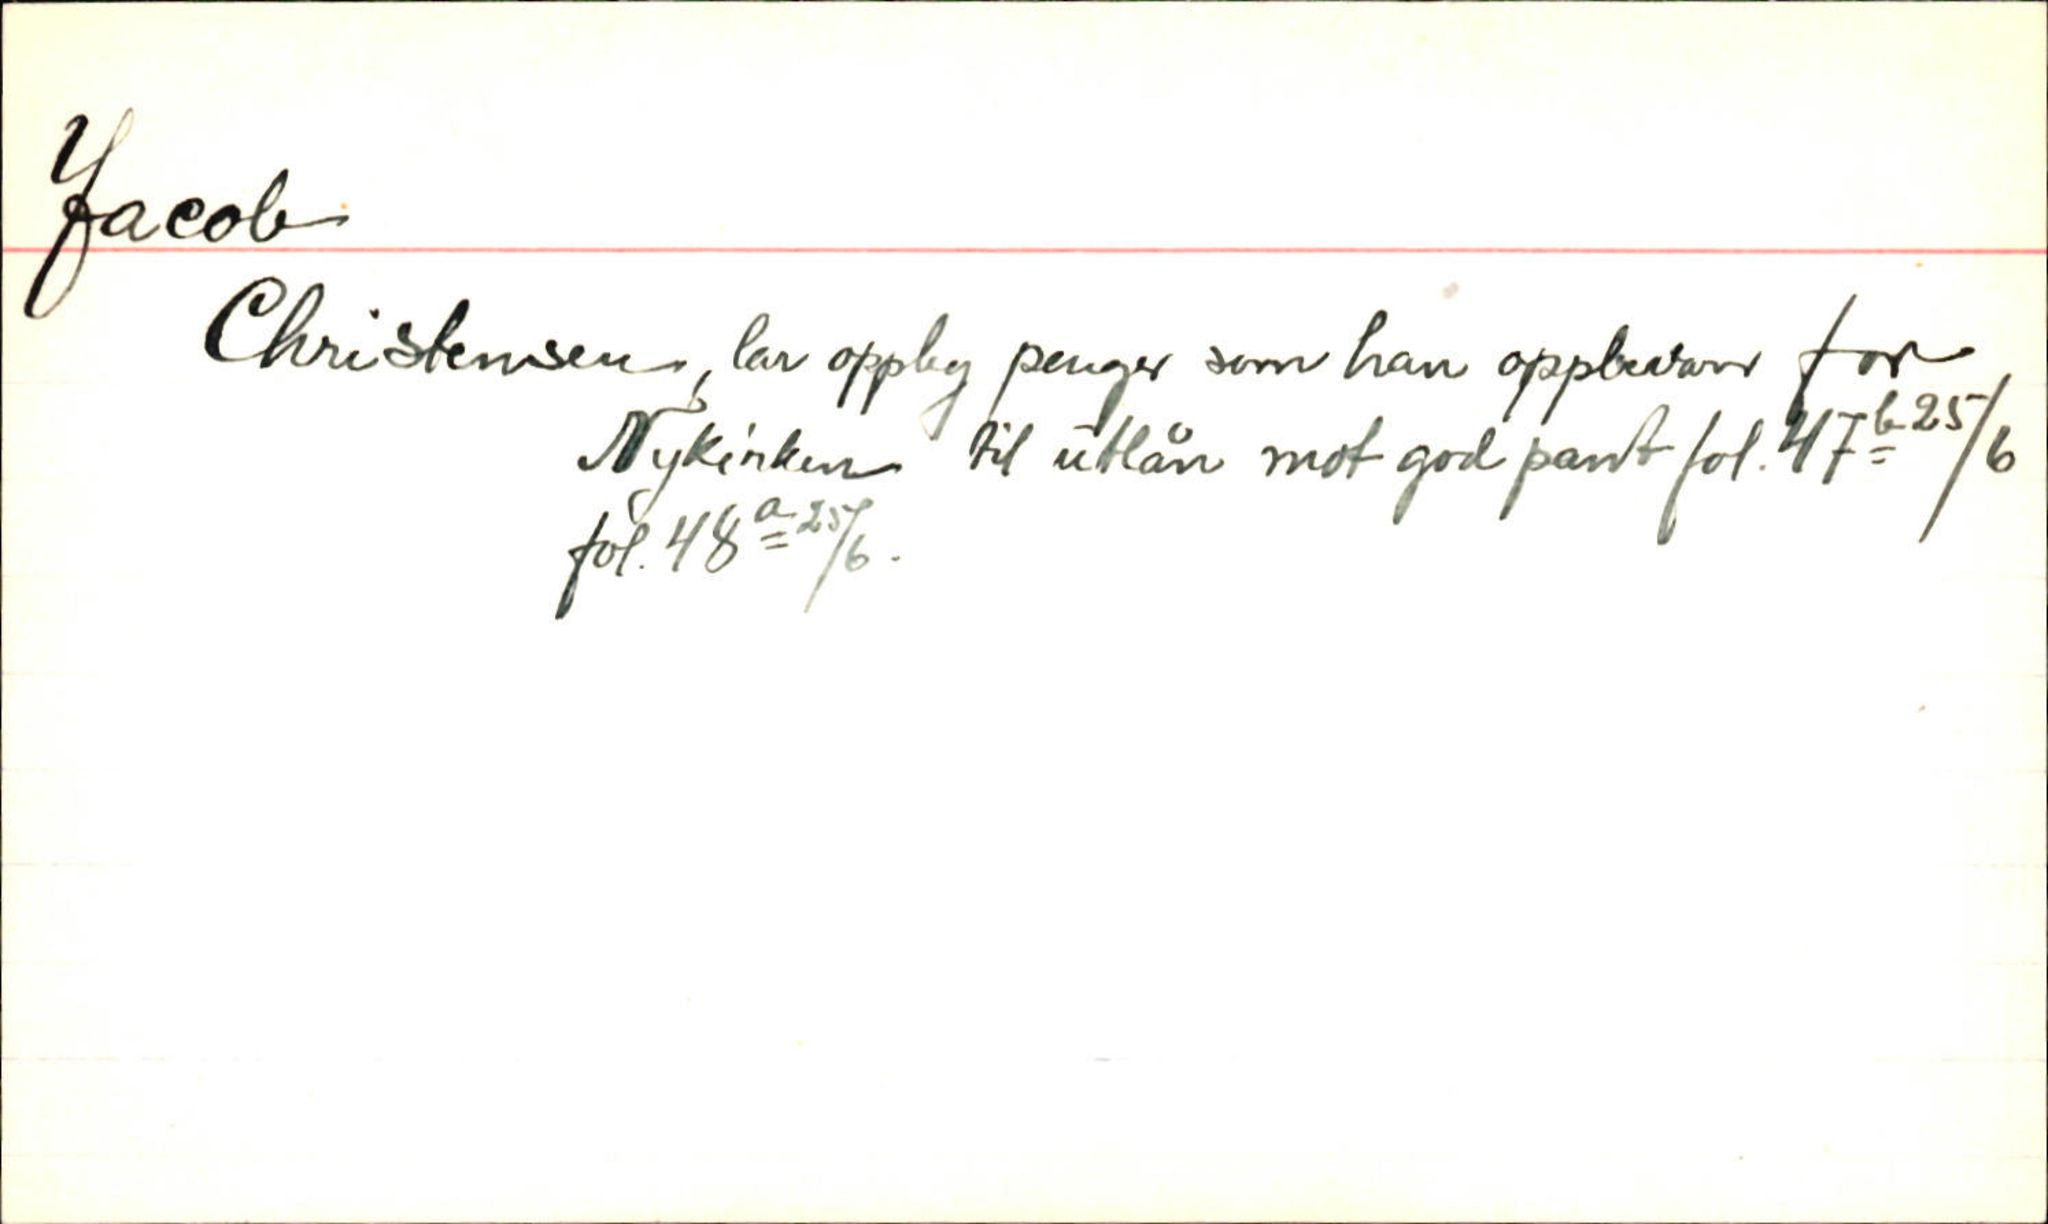 Jacob
Christensen, lar oppby penger som han oppbevarer for
Nykirken til utlån mot god pant fol. 47b 25/6
fol. 48a 25/6.